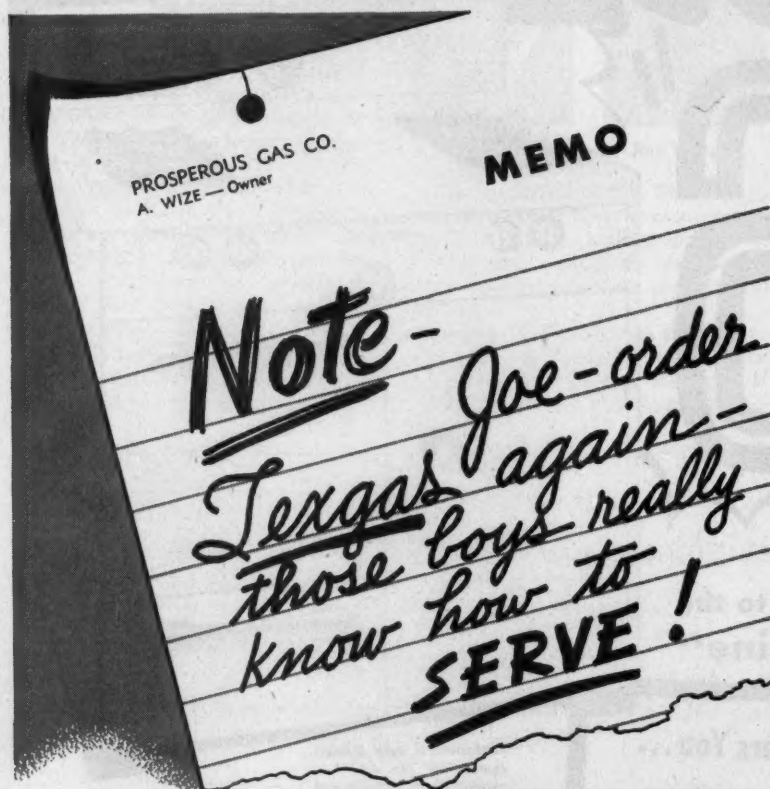 PROSPEROUS GAS CO.
A. WIZE — Owner
MEMO
Note -
Joe - order
Texgas again -
those boys really
know how to
SERVE!
to the
ine